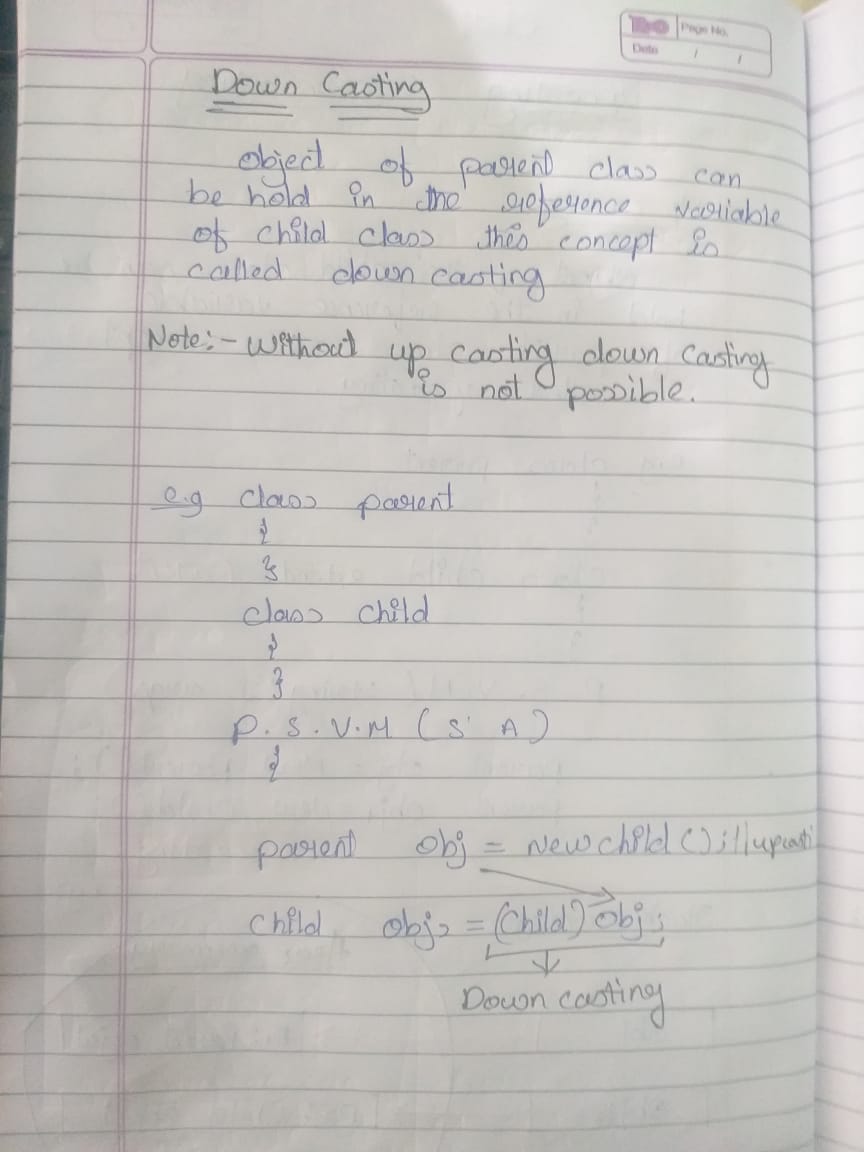 Page No.
Date / /
Down Casting
object of parent class can
be hold in the reference variable
of child class this concept is
called down casting
Note:- without up casting down casting
is not possible.
e.g class parent
{
}
class child
{
}
P.S.V.M (S A)
{
parent obj = new child(); // upcasti
child obj2 = (child) obj;
Down casting